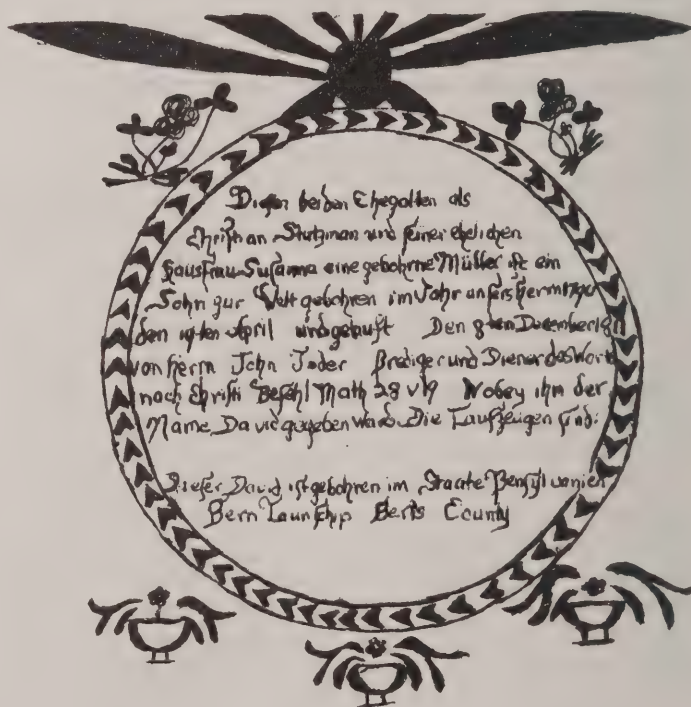 Diesen beiden Ehegatten als
Christian Stutzman und seiner ehelichen
Hausfrau Susanna eine gebohrne Müller ist ein
Sohn zur Welt gebohren im Jahr unsers Herrn
den ten April und getauft Den 8ten December
von Herrn John Joder Prediger und Diener des Worts
nach Christi Befehl Math 28 v 19 Wobey ihm der
Name David gegeben ward. Die Taufzeugen sind:
Dieser David ist gebohren im Staate Pensylvanien
Bern Taunschip Berks County